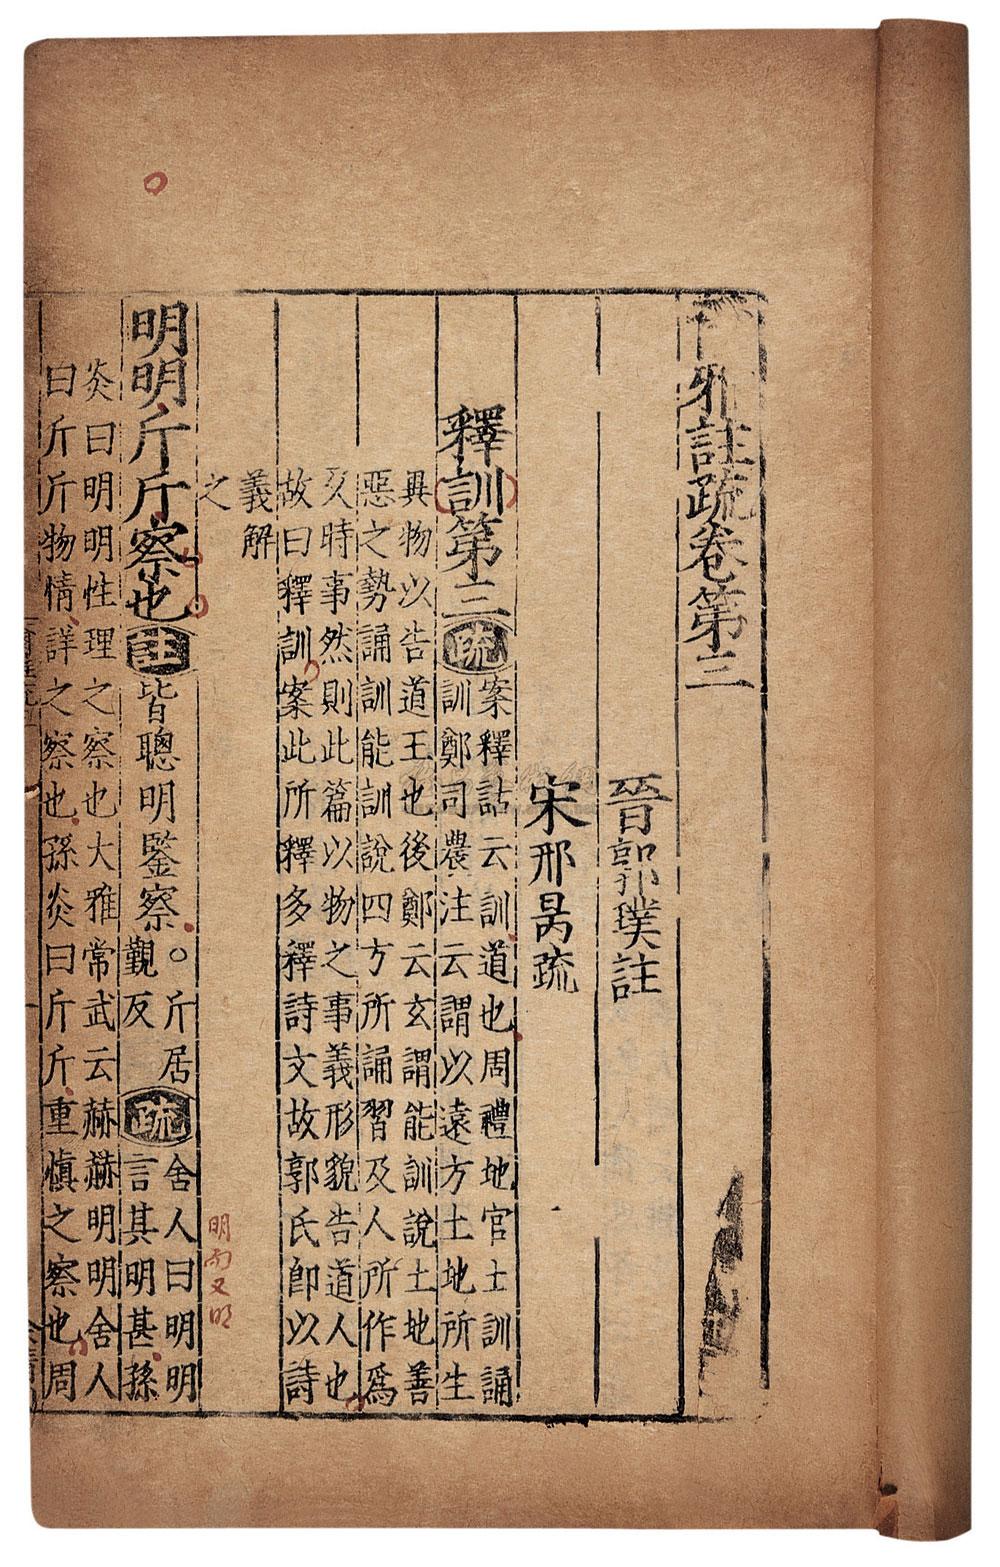 雅註疏卷第三
晉郭璞註
宋邢昺疏
釋訓第三疏
案釋詁云訓道也周禮地官土訓誦
訓鄭司農注云謂以遠方土地所生
異物以告道王也後鄭云玄謂能訓說土地善
惡之勢誦訓能訓說四方所誦習及人所作爲
久時事然則此篇以物之事義形貌告道人也
故曰釋訓案此所釋多釋詩文故郭氏即以詩
義解
之
明而又明
明明斤斤察也註皆聰明鑒察
○斤居
覲反
疏
舍人曰明明
言其明甚孫
炎曰明明性理之察也大雅常武云赫赫明明舍人
曰斤斤物情詳之察也孫炎曰斤斤重慎之察也周